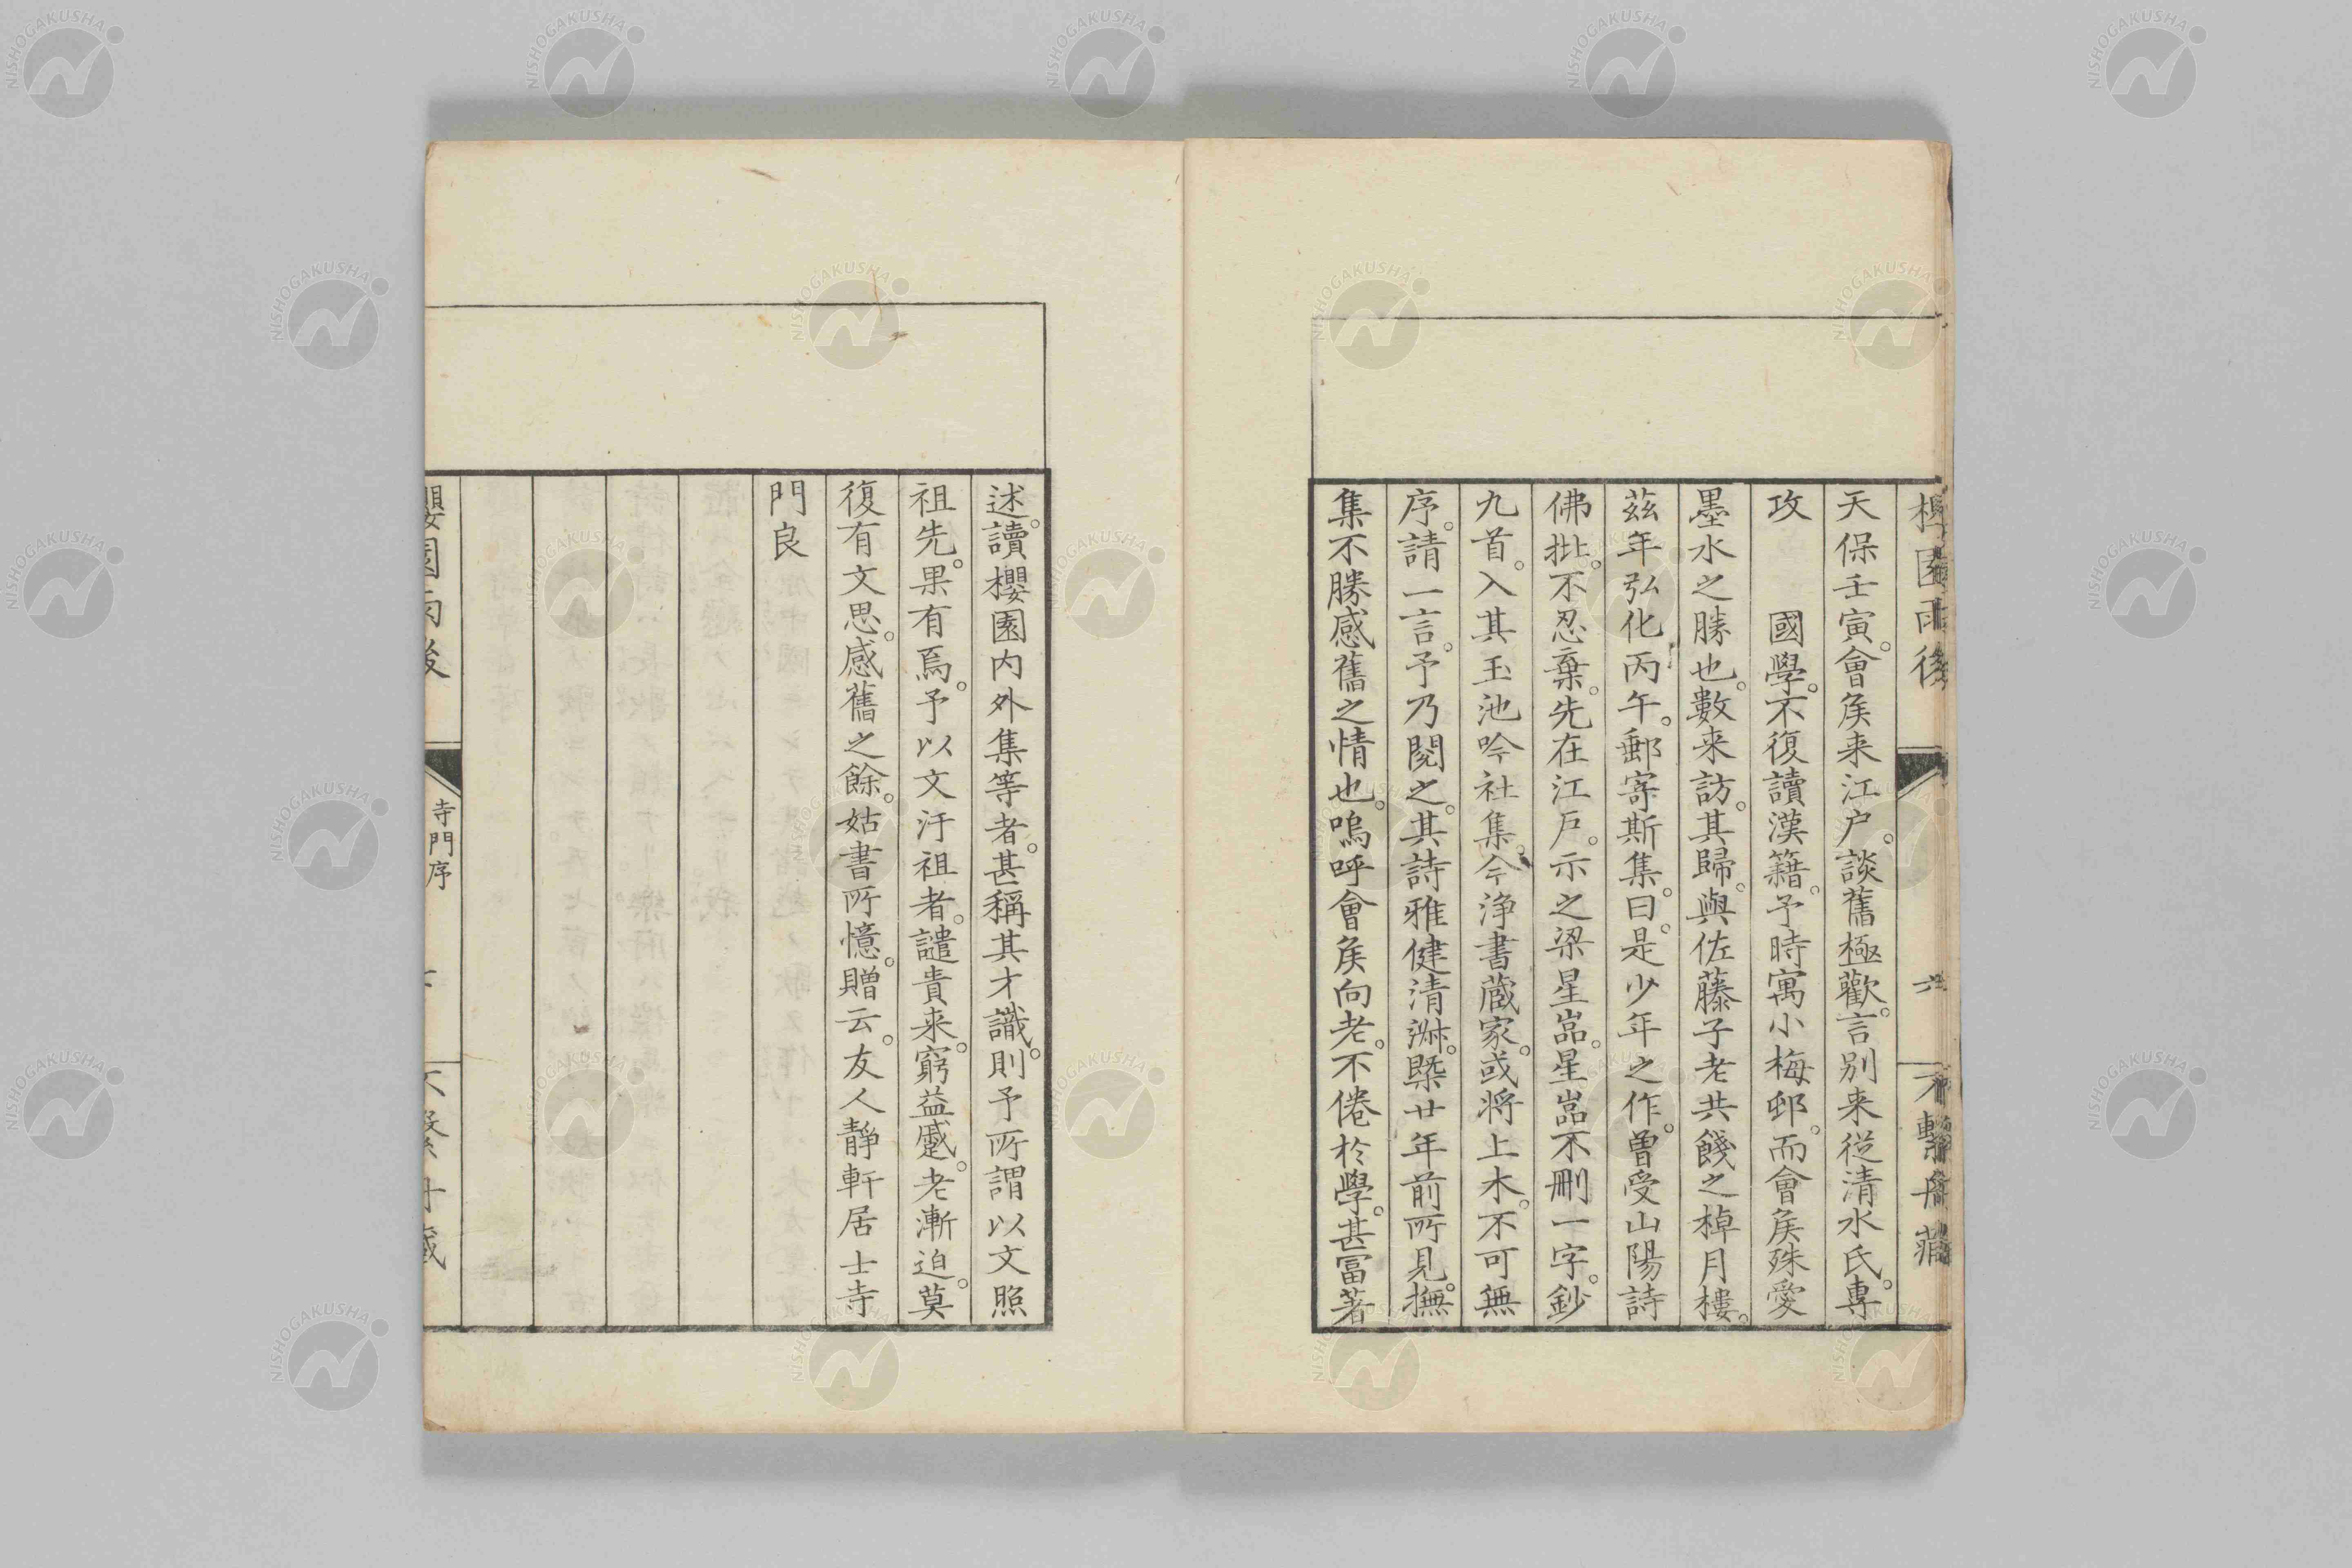 天保壬寅。會矦来江户。談舊極歡。言别来從清水氏。專
攻　　國學。不復讀漢籍。予時寓小梅邨。而會矦殊愛
墨水之勝也。數来訪。其歸。與佐藤子老共餞之棹月樓。
茲年弘化丙午。郵寄斯集。曰。是少年之作。曽受山陽詩
佛批。不忍棄。先在江戸。示之梁星嵓。星嵓不刪一字。鈔
九首。入其玉池吟社集。今浄書蔵家。或将上木。不可無
序。請一言。予乃閱之。其詩雅健清淋。槩廿年前所見。撫
集不勝感舊之情也。嗚呼會矦向老。不倦於學。甚冨著
述。讀櫻園内外集等者。甚稱其才識。則予所謂以文照
祖先。果有焉。予以文汙祖者。譴貴来。窮益蹙。老漸迫。莫
復有文思。感舊之餘。姑書所憶。贈云。友人靜軒居士寺
門良
寺門序
NISHOGAKUSHA